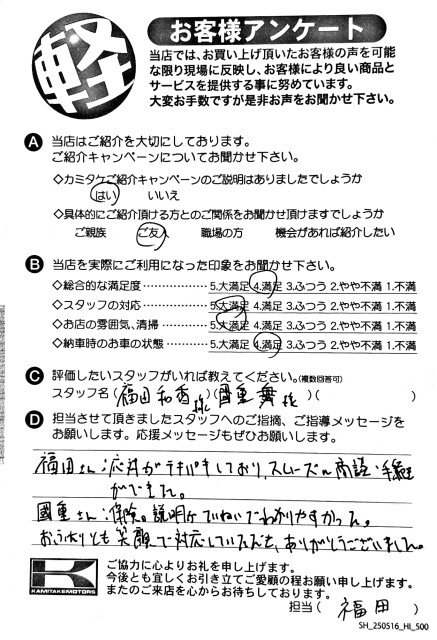 軽
お客様アンケート
当店では、お買い上げ頂いたお客様の声を可能
な限り現場に反映し、お客様により良い商品と
サービスを提供する事に努めています。
大変お手数ですが是非お声をお聞かせ下さい。
A 当店はご紹介を大切にしております。
ご紹介キャンペーンについてお聞かせ下さい。
◇カミタケご紹介キャンペーンのご説明はありましたでしょうか
はい いいえ
◇具体的にご紹介頂ける方とのご関係をお聞かせ頂けますでしょうか
ご親族 ご友人 職場の方 機会があれば紹介したい
B 当店を実際にご利用になった印象をお聞かせ下さい。
◇総合的な満足度 5.大満足 4.満足 3.ふつう 2.やや不満 1.不満
◇スタッフの対応 5.大満足 4.満足 3.ふつう 2.やや不満 1.不満
◇お店の雰囲気、清掃 5.大満足 4.満足 3.ふつう 2.やや不満 1.不満
◇納車時のお車の状態 5.大満足 4.満足 3.ふつう 2.やや不満 1.不満
C 評価したいスタッフがいれば教えてください。(複数回答可)
スタッフ名(福田和香様)(國重舞様)( )
D 担当させて頂きましたスタッフへのご指摘、ご指導メッセージを
お願いします。応援メッセージもぜひお願いします。
福田さん:応対がテキパキしており、スムーズに商談・手続き
ができました。
國重さん:保険の説明がていねいでわかりやすかった。
おふたりとも笑顔で対応していただき、ありがとうございました。
KAMITAKEMOTORS
ご協力に心よりお礼を申し上げます。
今後とも宜しくお引き立てご愛顧の程お願い申し上げます。
またのご来店を心からお待ちしております。
担当(福田)
SH_250516_HI_500